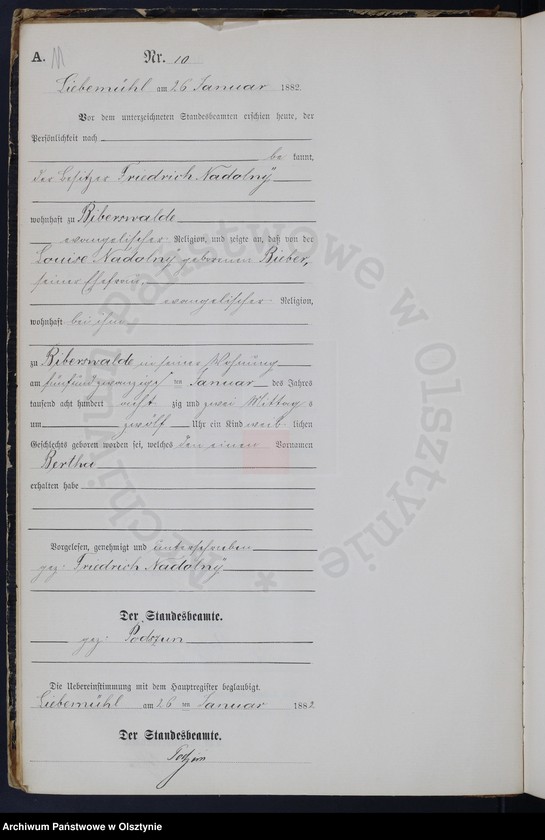 A. Nr. 10
Liebemühl am 26 Januar 1882.
Vor dem unterzeichneten Standesbeamten erschien heute, der
Persönlichkeit nach
be kannt,
der Besitzer Friedrich Nadolny
wohnhaft zu Biberswalde
evangelischer Religion, und zeigte an, daß von der
Louise Nadolny geborenen Bieber,
seiner Ehefrau,
evangelischer Religion,
wohnhaft bei ihm
zu Biberswalde in seiner Wohnung
am fünfundzwanzigsten Januar des Jahres
tausend acht hundert acht zig und zwei Mittags
um zwölf Uhr ein Kind weib lichen
Geschlechts geboren worden sei, welches den einen Vornamen
Bertha
erhalten habe
Vorgelesen, genehmigt und unterschrieben
gez: Friedrich Nadolny
Der Standesbeamte.
gez: Podszun
Die Uebereinstimmung mit dem Hauptregister beglaubigt.
Liebemühl am 26 ten Januar 1882.
Der Standesbeamte.
Podszun
Archiwum Państwowe w Olsztynie
Archiwum Państwowe w Olsztynie